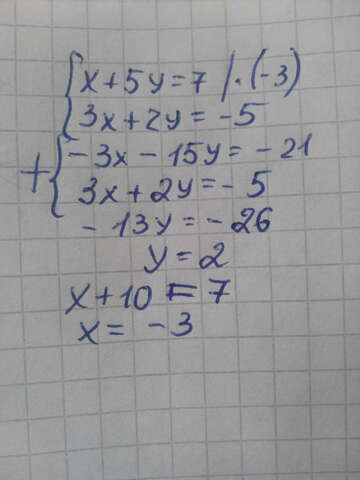 x+5y=7 /·(-3)
3x+2y=-5
-3x-15y=-21
+ 3x+2y=-5
-13y=-26
y=2
x+10=7
x=-3